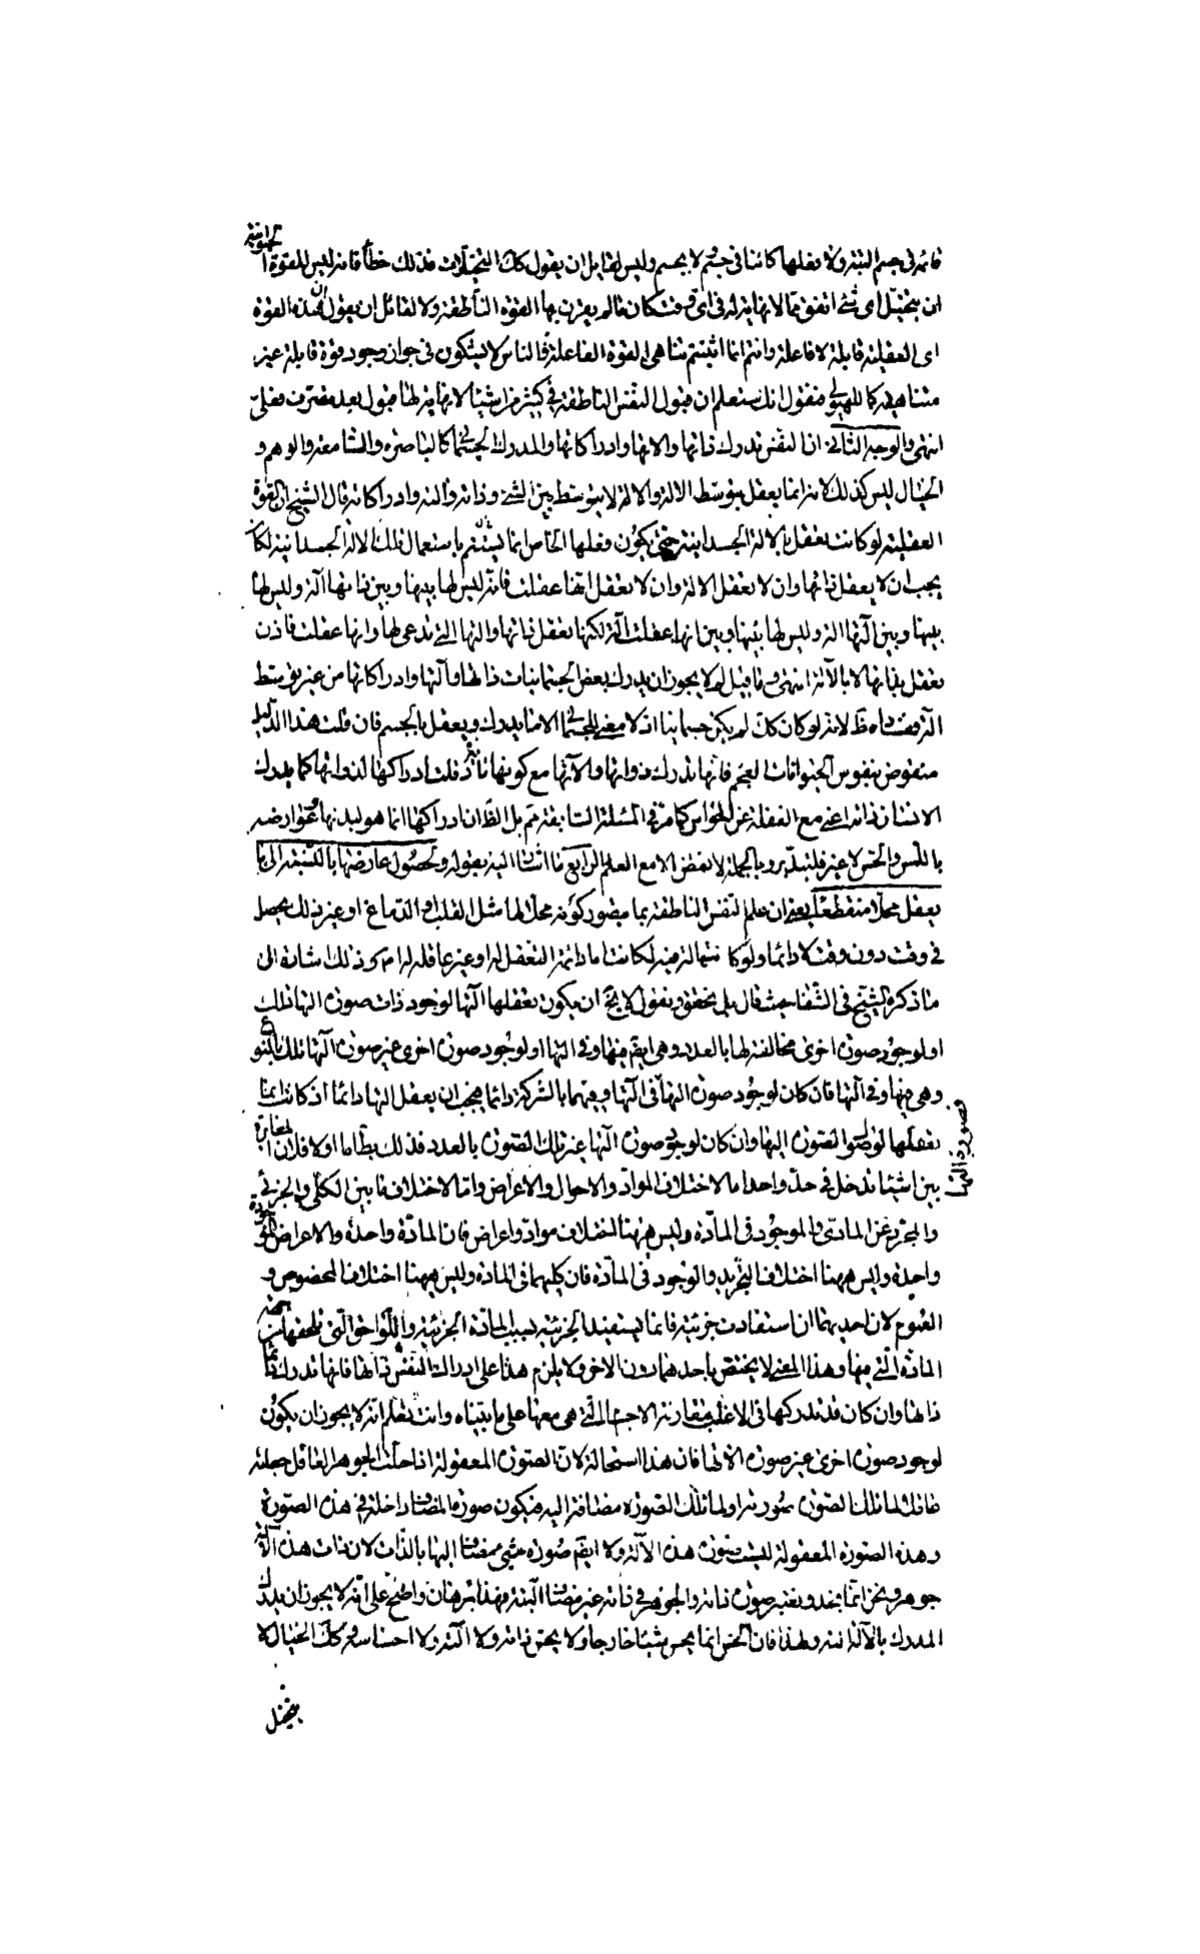 قائمة في جسم البتة ولا بفعلها كائنا في جسم لا بجسم وليس لقائل ان يقول كك التخيلات فذلك خطأ فانه ليس للقوة الحيوانية
ان يتخيل اى شئ اتفق مما لا نهاية له في اى وقت كان ما لم يقترن بها القوة الناطقة ولا لقائل ان يقول ان هذه القوة
اى العقلية قابلة لا فاعلة وانتم انما اثبتم تناهى القوة الفاعلة والناس لا يشكون في جواز وجود قوة قابلة غير
متناهية كما للهيولى فنقول انك ستعلم ان قبول النفس الناطقة في كثير من اشياء لا نهاية لها قبول بعد تصرف فعلى
انتهى والوجه الثاني ان النفس تدرك ذاتها والاتها وادراكاتها والمدرك الجسماني كالباصرة والسامعة والوهم و
الخيال ليس كذلك لانه انما يعقل بتوسط الالة والالة لا يتوسط بين الشئ وذاته والته وادراكاته قال الشيخ ان القوة
العقلية لو كانت تعقل بالالة الجسدانية حتى يكون فعلها الخاص انما يستتم باستعمال تلك الالة الجسدانية لكان
يجب ان لا يعقل ذاتها وان لا تعقل الالة وان لا تعقل انها عقلت فانه ليس لها بينها وبين ذاتها آلة وليس لها
بينها وبين آلتها الة وليس لها بينها وبين انها عقلت آلة لكنها تعقل ذاتها والتها التي تدعى لها وانها عقلت فاذن
تعقل بذاتها لا بالآلة انتهى وما قيل لم لا يجوز ان يدرك بعض الجسمانيات ذاتها وآلتها وادراكاتها من غير توسط
آلة ففساده ظ لانه لو كان كك لم يكن جسمانيا اذ لا معنى للجسماني الا ما يدرك ويعقل بالجسم فان قلت هذا الدليل
منقوض بنفوس الحيوانات العجم فانها تدرك ذواتها وآلاتها مع كونها قلت ادراكها لذواتها كما يدرك
الانسان ذاته اعنى مع الغفلة عن الحواس كما مر في المسئلة السابقة مم بل الظ ان ادراكها انما هو لبدنها وعوارضه
باللمس والحس لا غير فليتدبر وبالجملة لا نقض الا مع العلم الرابع ما اشار اليه بقوله وحصول عارضها بالنسبة الى ما
يعقل محلا منقطعا يعنى ان علم النفس الناطقة بما يتصور كونه محلا لها مثل القلب او الدماغ او غير ذلك يحصل
في وقت دون وقت لا دائما ولو كانت حالة فيه لكانت اما دائمة التعقل له او غير عاقلة له وذلك اشارة الى
ما ذكره الشيخ في الشفا حيث قال بل نحقق ونقول لا يخ ان يكون تعقلها آلتها لوجود ذات صورة التها تلك
او لوجود صورة اخرى مخالفة لها بالعدد وهي ايضا فيها وفي التها او لوجود صورة اخرى غير صورة آلتها تلك بالنوع
وهي فيها وفي آلتها فان كان لوجود صورة التها في آلتها وفيهما بالشركة دائما فيجب ان يعقل التها دائما اذ كانت انما
تعقلها لوصول الصورة اليها وان كان لوجود صورة آلتها غير تلك الصورة بالعدد فذلك بط اما اولا فلان المغايرة
بين اشياء تدخل في حد واحد اما لاختلاف المواد والاحوال والاعراض واما لاختلاف ما بين الكلى والجزئى
والمجرد عن المادة والموجود في المادة وليس ههنا اختلاف مواد واعراض فان المادة واحدة والاعراض الموجودة
واحدة وليس ههنا اختلاف التجريد والوجود في المادة فان كليهما في المادة وليس ههنا اختلاف الخصوص و
العموم لان احديهما ان استفادت جزئية فانما يستفيد الجزئية بسبب المادة الجزئية واللواحق التي تلحقها من جهة
المادة التي فيها وهذا المعنى لا يختص باحدهما دون الاخر ولا يلزم هذا على ادراك النفس ذاتها فانها تدرك دائما
ذاتها وان كان قد تدركها في الاغلب مقارنة الاجسام التي هي معها على ما بيناه وانت تعلم انه لا يجوز ان يكون
لوجود صورة اخرى غير صورة الاتها فان هذا استحالة لان الصورة المعقولة اذا حلت الجوهر العاقل جعلته
عاقلا لما تلك الصورة صورته او لما تلك الصورة مضافة اليه فيكون صورة المضاف داخلة في هذه الصورة
وهذه الصورة المعقولة ليست صورة هذه الآلة ولا ايضا صورة شئ مضاف اليها بالذات لان ذات هذه الآلة
جوهر ونحن انما نأخذ ونعتبر صورة ذاته والجوهر في ذاته غير مضاف البتة فهذا برهان واضح على انه لا يجوز ان يدرك
المدرك بالآلة الته ولهذا فان الحس انما يحس شيئا خارجا ولا يحس ذاته ولا آلته ولا احساسه وكك الخيال لا
يتخيل
فصورة التها